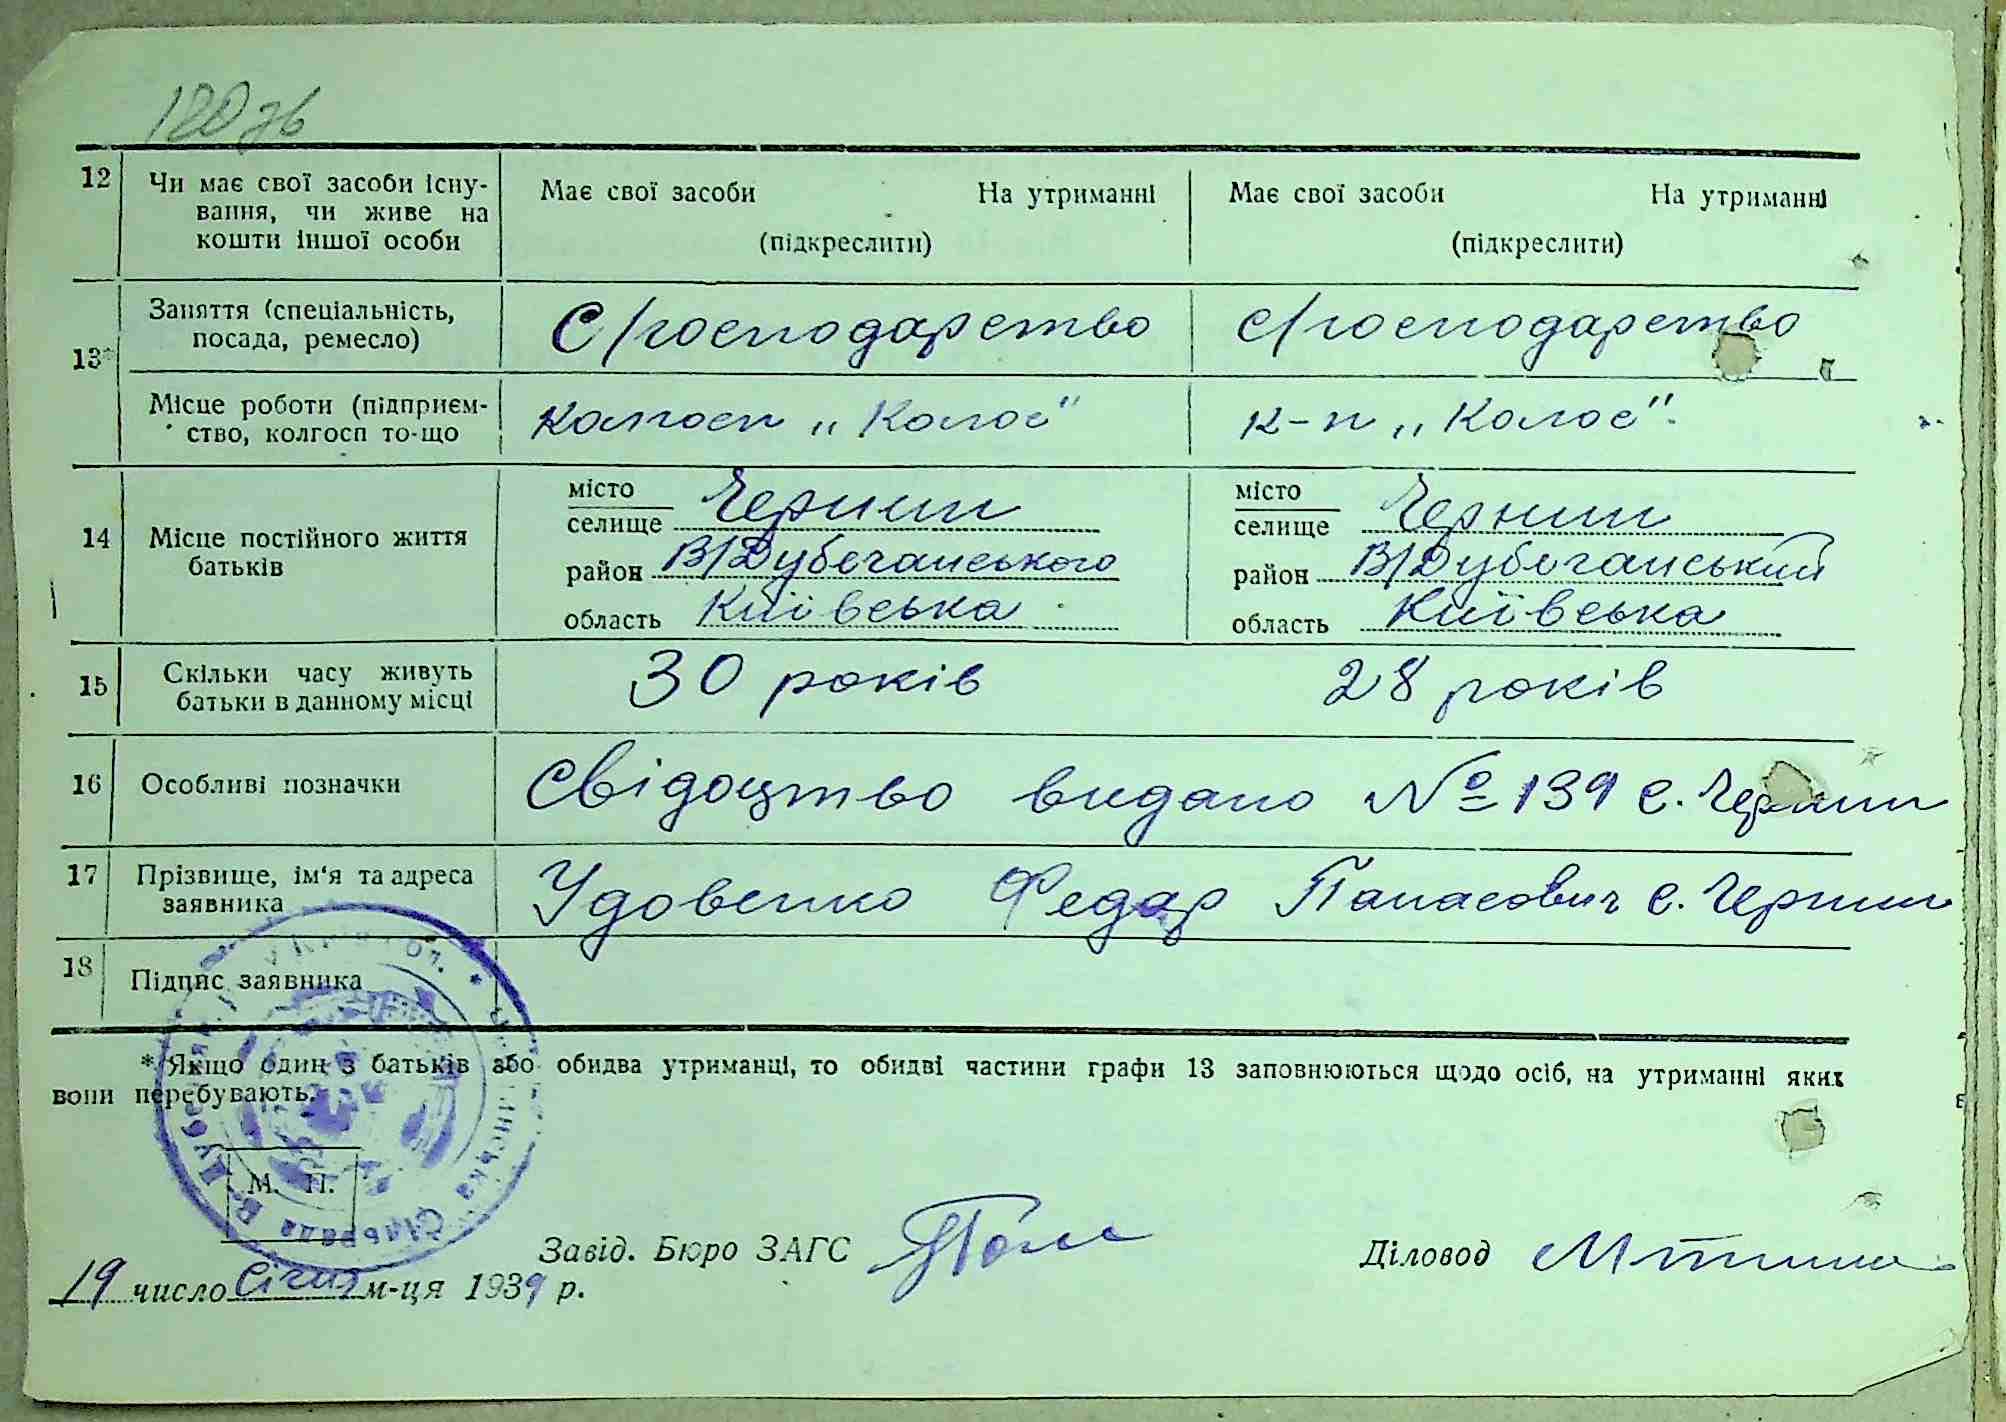 180 зв
12 Чи має свої засоби існу- Має свої засоби На утриманні Має свої засоби На утриманні
вання, чи живе на
кошти іншої особи (підкреслити) (підкреслити)
13* Заняття (спеціальність, С/господарство с/господарство
посада, ремесло)
Місце роботи (підприєм- Колгосп „Колос" к-п „Колос".
ство, колгосп то-що
14 Місце постійного життя батьків
місто селище Чернин місто селище Чернин
район В/Дубечанського район В/Дубечанський
область Київська область Київська
15 Скільки часу живуть 30 років 28 років
батьки в данному місці
16 Особливі позначки Свідоцтво видано № 139 с. Чернин
17 Прізвище, ім'я та адреса Удовенко Федар Панасович с. Чернин
заявника
18 Підпис заявника
* Якщо один з батьків або обидва утриманці, то обидві частини графи 13 заповнюються щодо осіб, на утриманні яких
вони перебувають.
М. П.
Завід. Бюро ЗАГС Діловод
19 число Січня м-ця 1939 р.